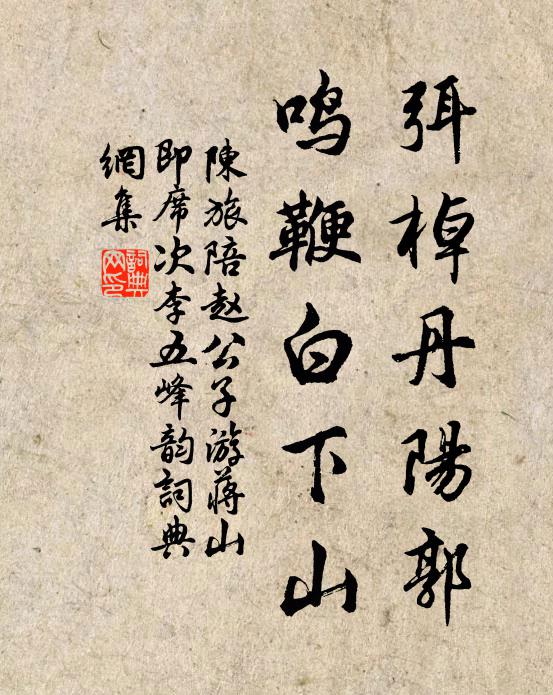 弭棹丹陽郭
鳴鞭白下山
陳旅陪赵公子游蔣山
即席次李五峰韵詞典
網集
詞典
网印